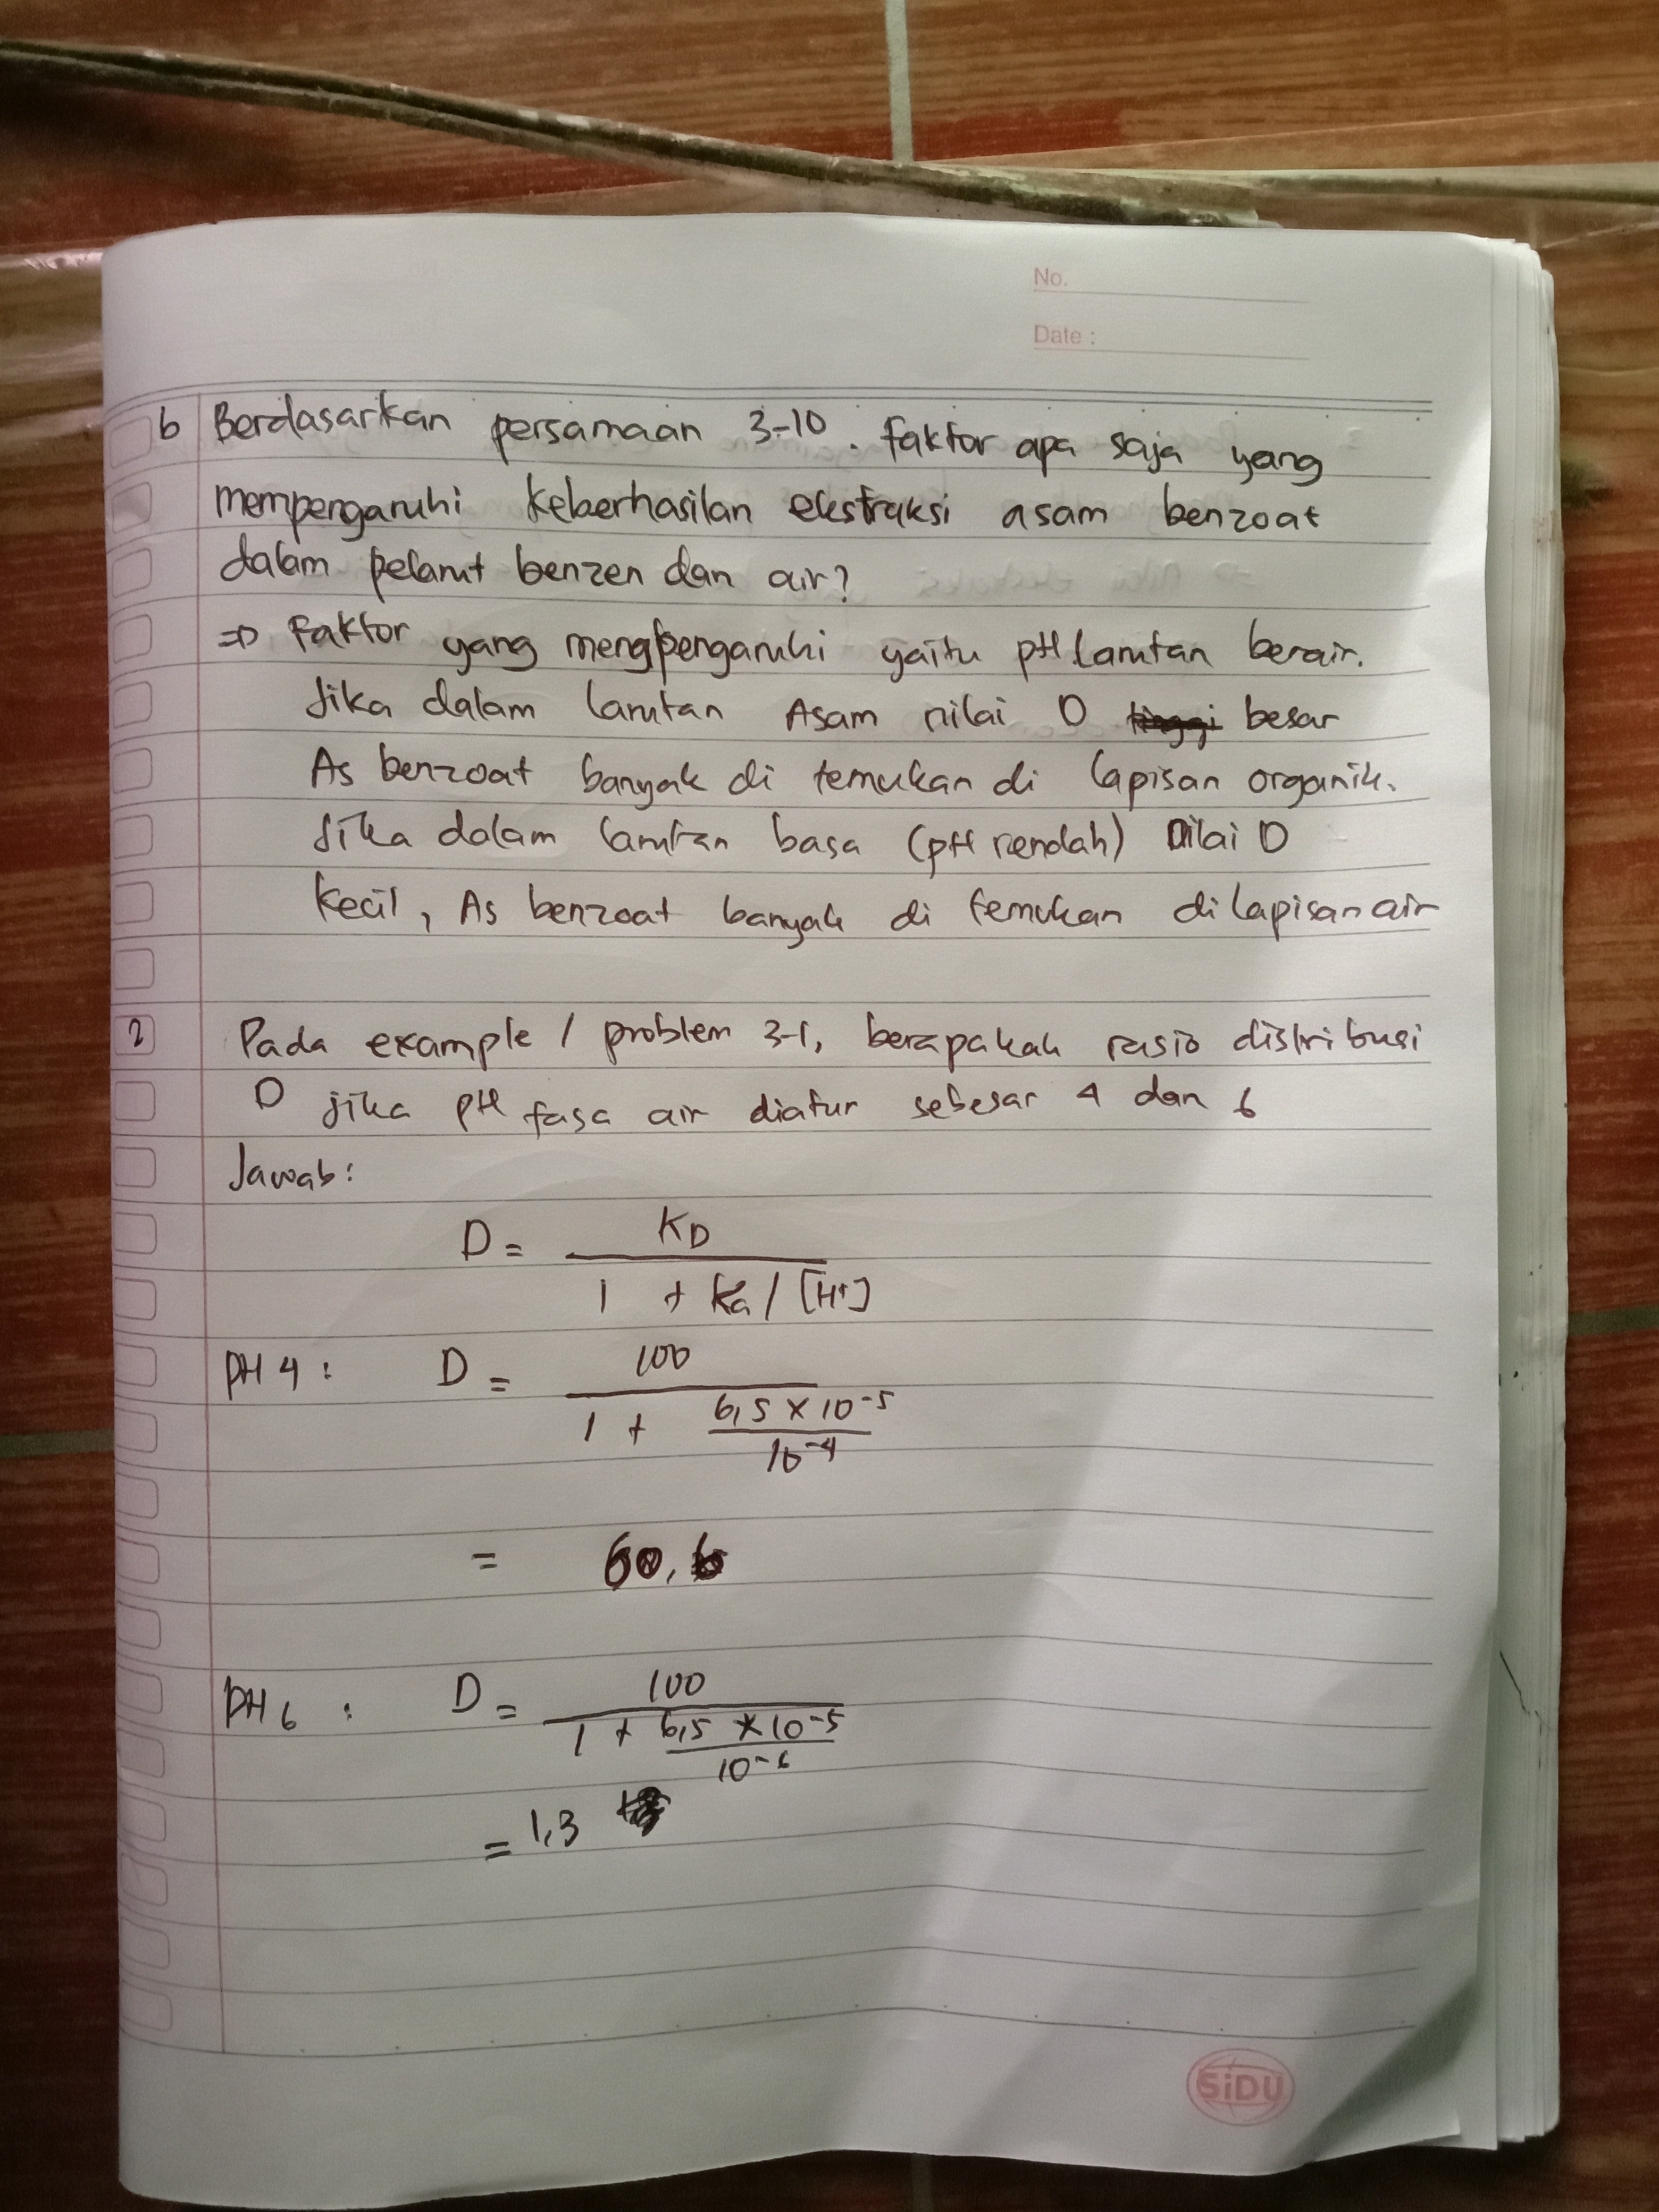 No.
Date :
b Berdasarkan persamaan 3-10. faktor apa saja yang
mempengaruhi keberhasilan ekstraksi asam benzoat
dalam pelarut benzen dan air?
⇒ Faktor yang mengpengaruhi yaitu pH larutan berair.
Jika dalam larutan Asam nilai D besar
As benzoat banyak di temukan di lapisan organik.
Jika dalam larutan basa (pH rendah) nilai D
kecil, As benzoat banyak di temukan di lapisan air
2 Pada example / problem 3-1, berapakah rasio distribusi
D jika pH fasa air diatur sebesar 4 dan 6
Jawab:
D = KD
1 + Ka / [H+]
PH 4 : D = 100
1 + 6,5 × 10-5
10-4
= 60,6
PH 6 : D = 100
1 + 6,5 × 10-5
10-6
= 1,3
SiDU